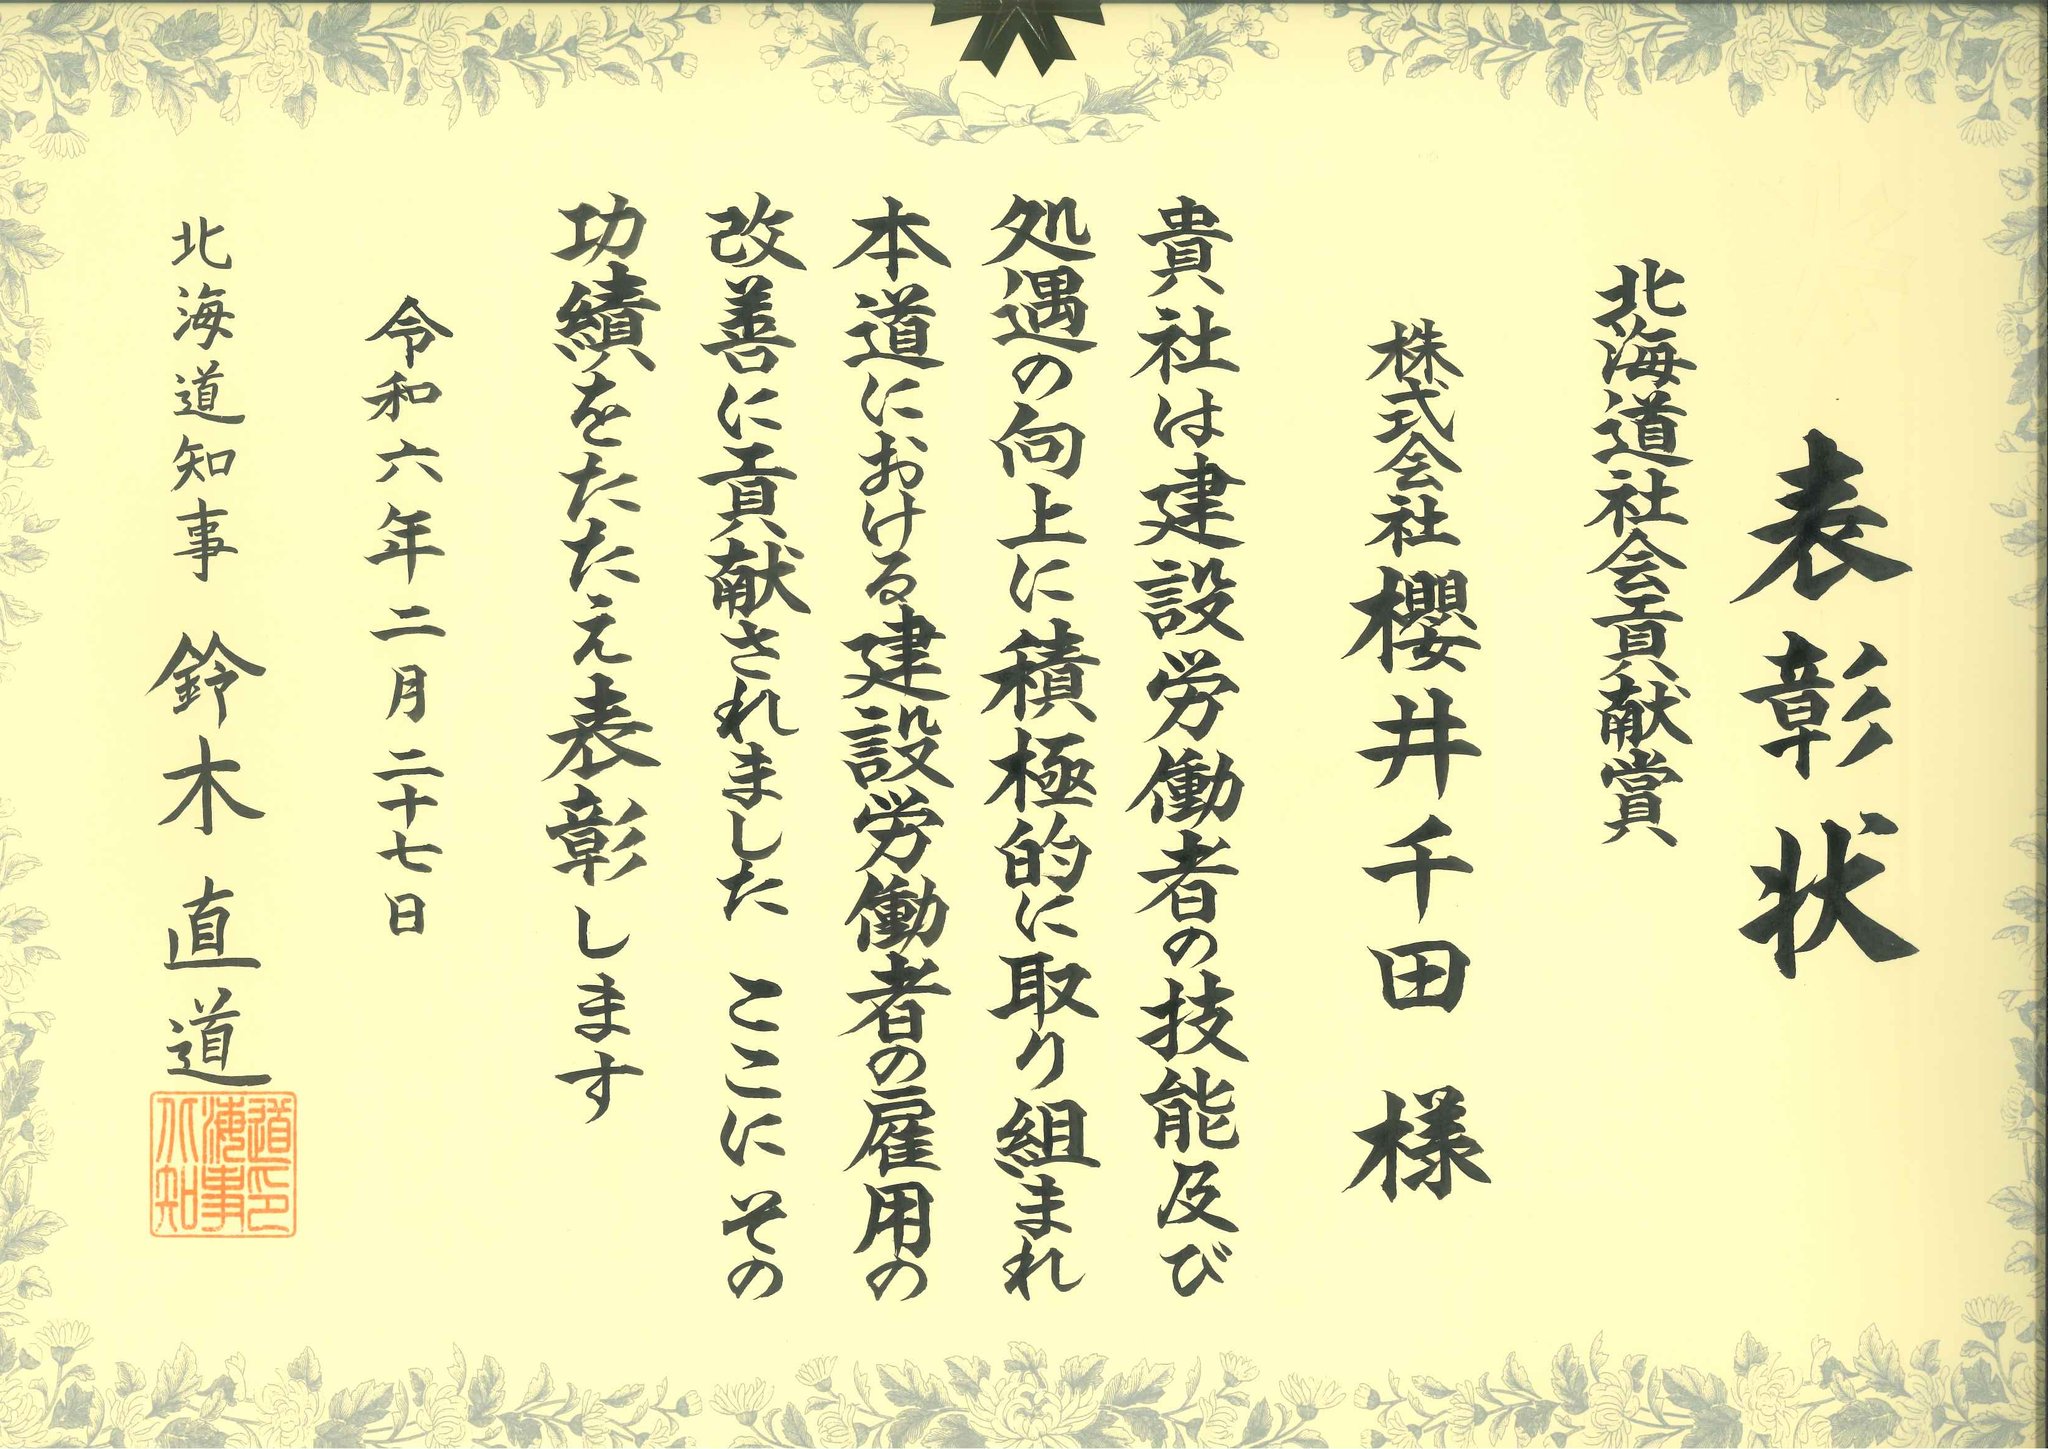 表彰状
北海道社会貢献賞
株式会社櫻井千田 様
貴社は建設労働者の技能及び
処遇の向上に積極的に取り組まれ
本道における建設労働者の雇用の
改善に貢献されました ここに その
功績をたたえ表彰します
令和六年二月二十七日
北海道知事 鈴木直道
北海道知事印